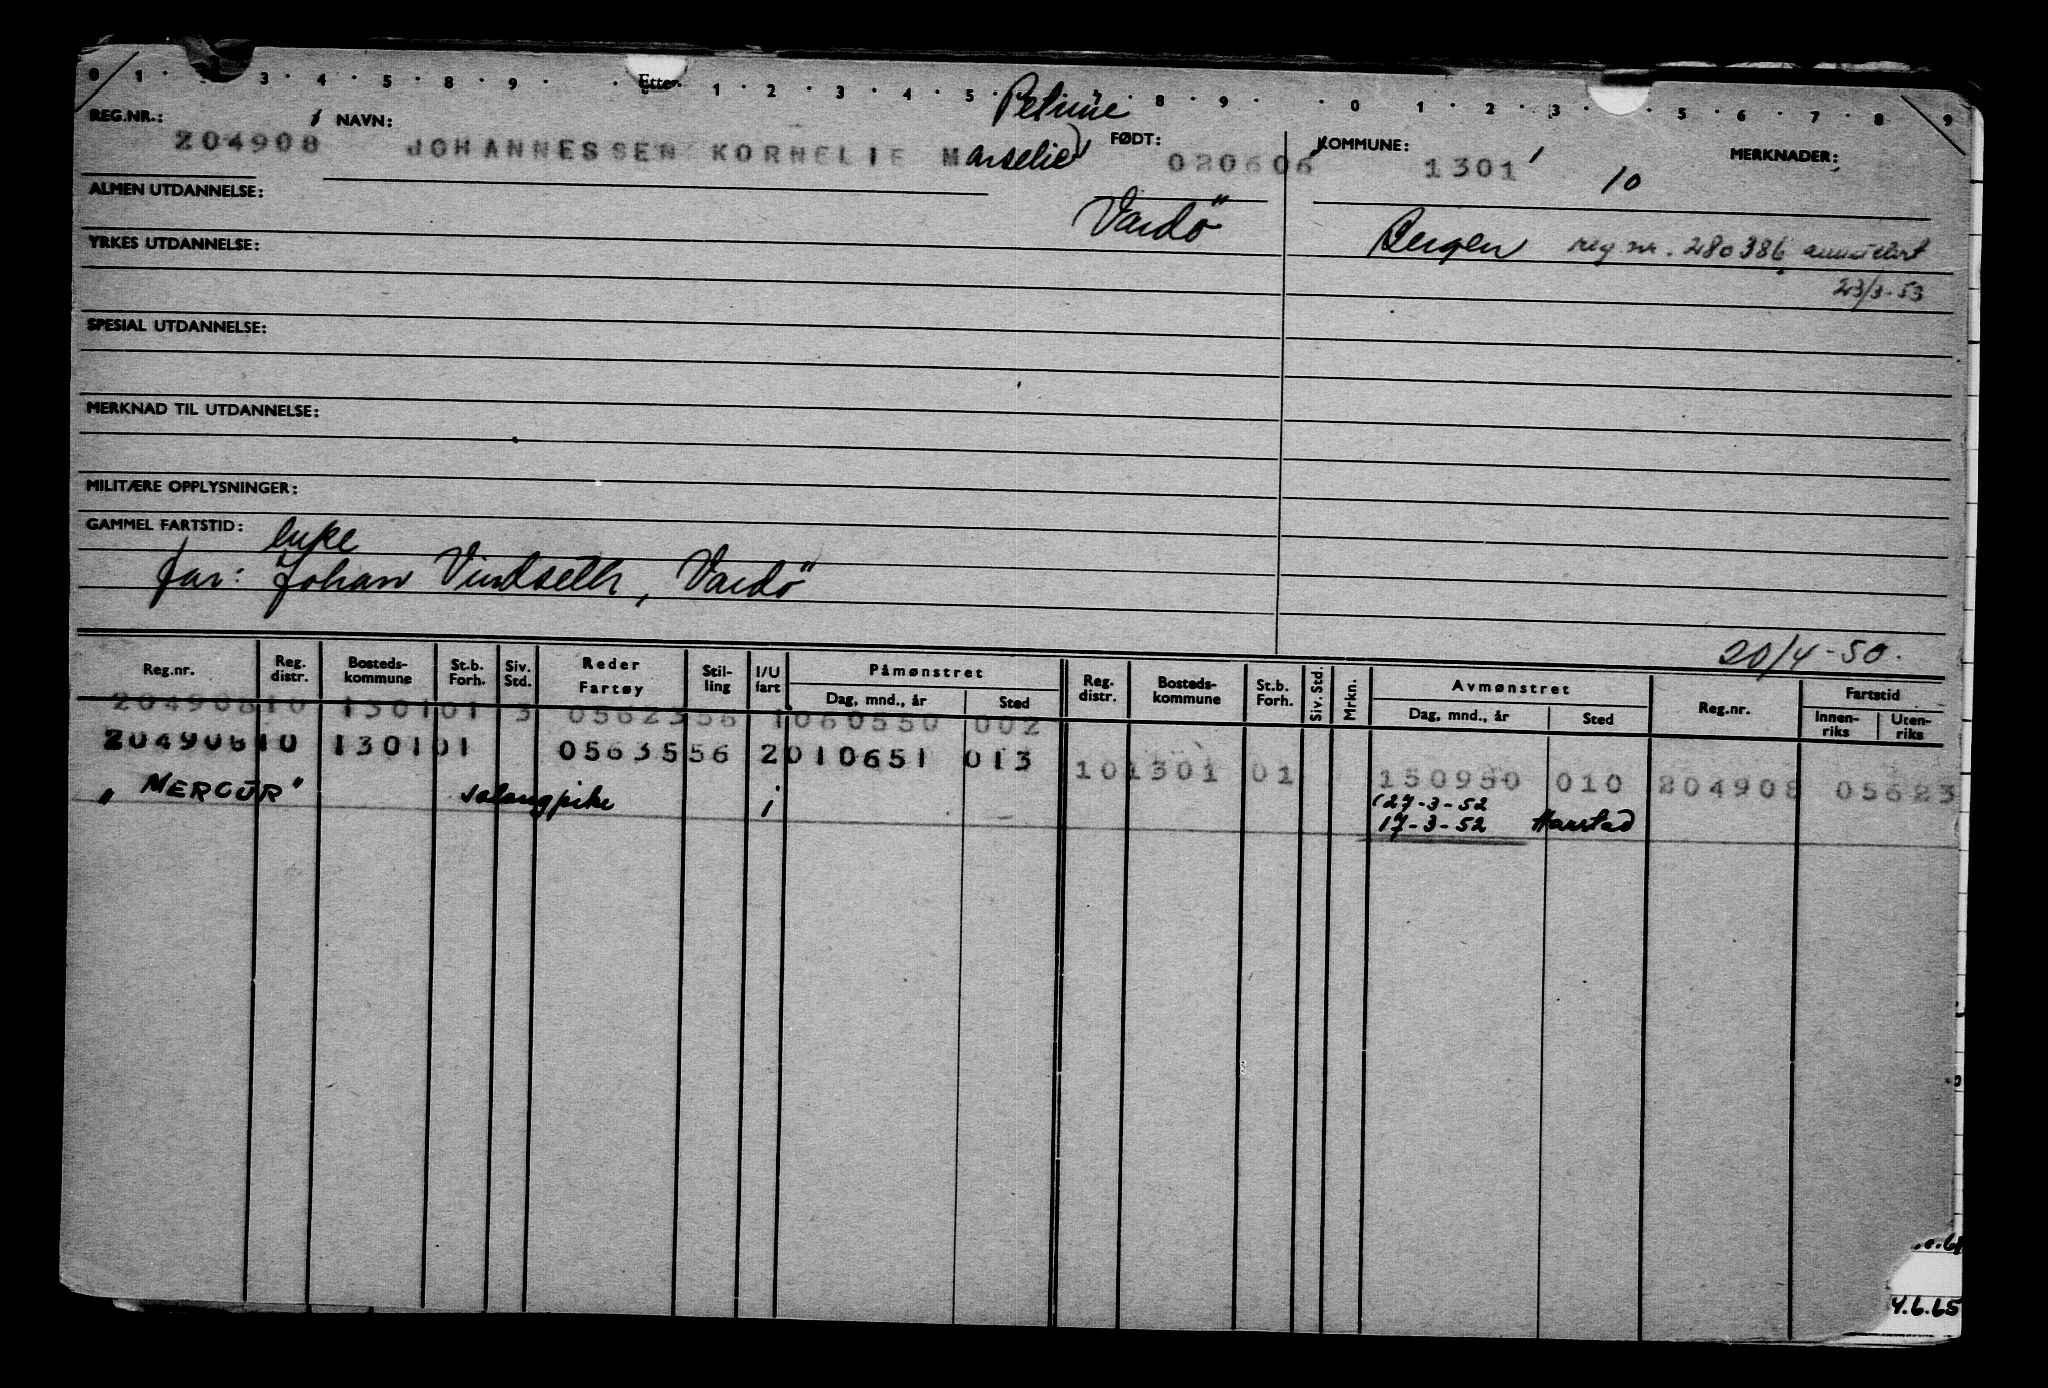 0 1 · · 3 · 4 · 5 · 8 · 9 · · Etter. 1 · 2 · 3 · 4 · 5 · · 8 · 9 · · 0 · 1 · 2 · 3 · · 5 · 6 · 7 · 8 · 9
Petrine
REG.NR.: NAVN: FØDT: KOMMUNE: MERKNADER:
204908 JOHANNESSEN KORNELIE Marselie 020606 1301 10
ALMEN UTDANNELSE:
Vardö
YRKES UTDANNELSE:
Bergen reg nr. 280386 annulert
23/3-53
SPESIAL UTDANNELSE:
MERKNAD TIL UTDANNELSE:
MILITÆRE OPPLYSNINGER:
GAMMEL FARTSTID:
enke
far: Johan Vindseth, Vardö
20/4-50.
Reg.nr. Reg. distr. Bosteds-kommune St.b. Forh. Siv. Std. Reder Fartøy Stil-ling I/U fart Påmønstret Dag, mnd., år Sted Reg. distr. Bosteds-kommune St.b. Forh. Siv. Std. Mrkn. Avmønstret Dag, mnd., år Sted Reg.nr. Fartstid Innen-riks Uten-riks
204908 10 1301 01 3 05623 56 1 060550 002
204908 10 1301 01 05635 56 2 010651 013
10 1301 01 150950 010 204908 05623
"MERCUR" salongpike i
27-3-52
17-3-52 Harstad
4.6.65